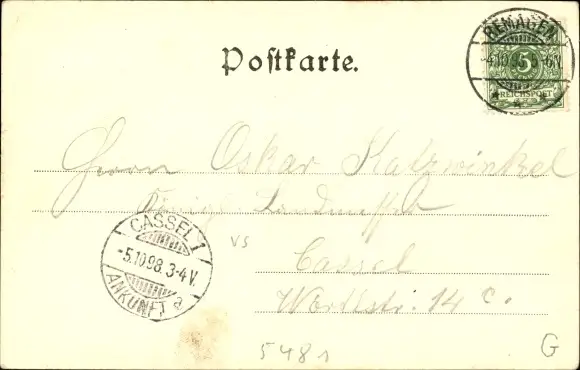 Postkarte.
REMAGEN
4.10.98. 5-6V.
5
REICHSPOST
Herrn Oskar Katzwinkel
Königl. Landmesser
CASSEL 1
-5.10.98. 3-4V.
ANKUNFT a
VS
Cassel
14 c.
5481
G